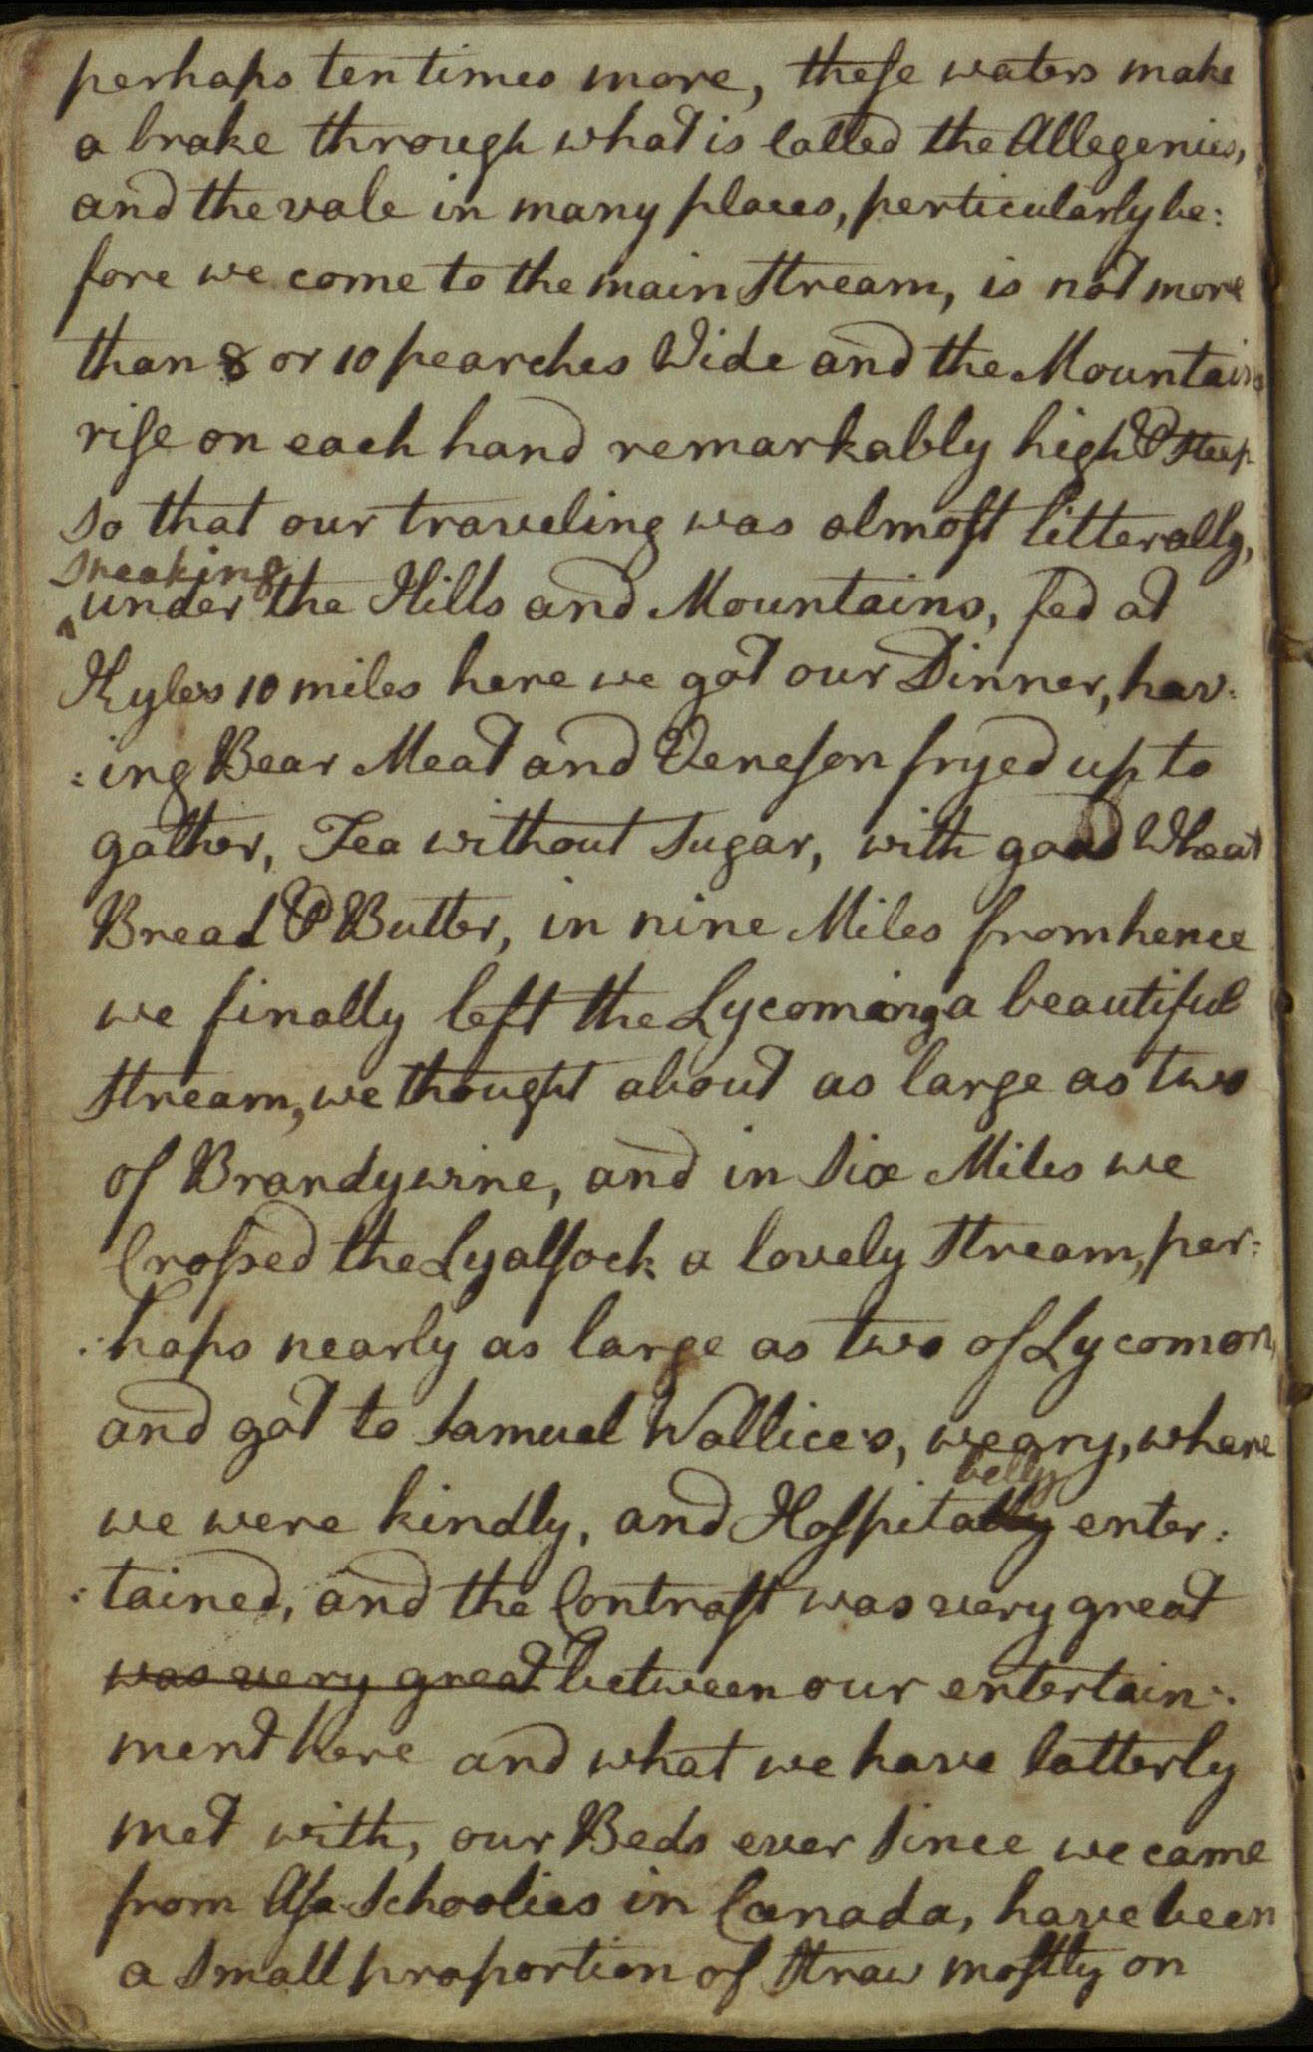 perhaps ten times more, these waters make
a brake through what is called the Allegenies,
and the vale in many places, perticularly be:
fore we come to the main stream, is not more
than 8 or 10 pearches Wide and the Mountains
rise on each hand remarkably high & steep
so that our traveling was almost litterally,
speaking
under the Hills and Mountains, fed at
Kyles 10 miles here we got our Dinner, hav:
:ing Bear Meat and Veneson fryed up to
gather, Tea without sugar, with good Wheat
Bread & Butter, in nine Miles from hence
we finally left the Lycoming a beautiful
stream, we thought about as large as two
of Brandywine, and in six Miles we
Crossed the Lyalsock a lovely stream, per:
:haps nearly as large as two of Lycomon,
and got to Samuel Wallice's, weary, where
belly
we were kindly, and Hospitally enter:
:tained, and the Contrast was very great
was very great between our entertain:
ment here and what we have latterly
met with, our Beds ever since we came
from Asa Schoolies in Canada, have been
a small proportion of straw mostly on